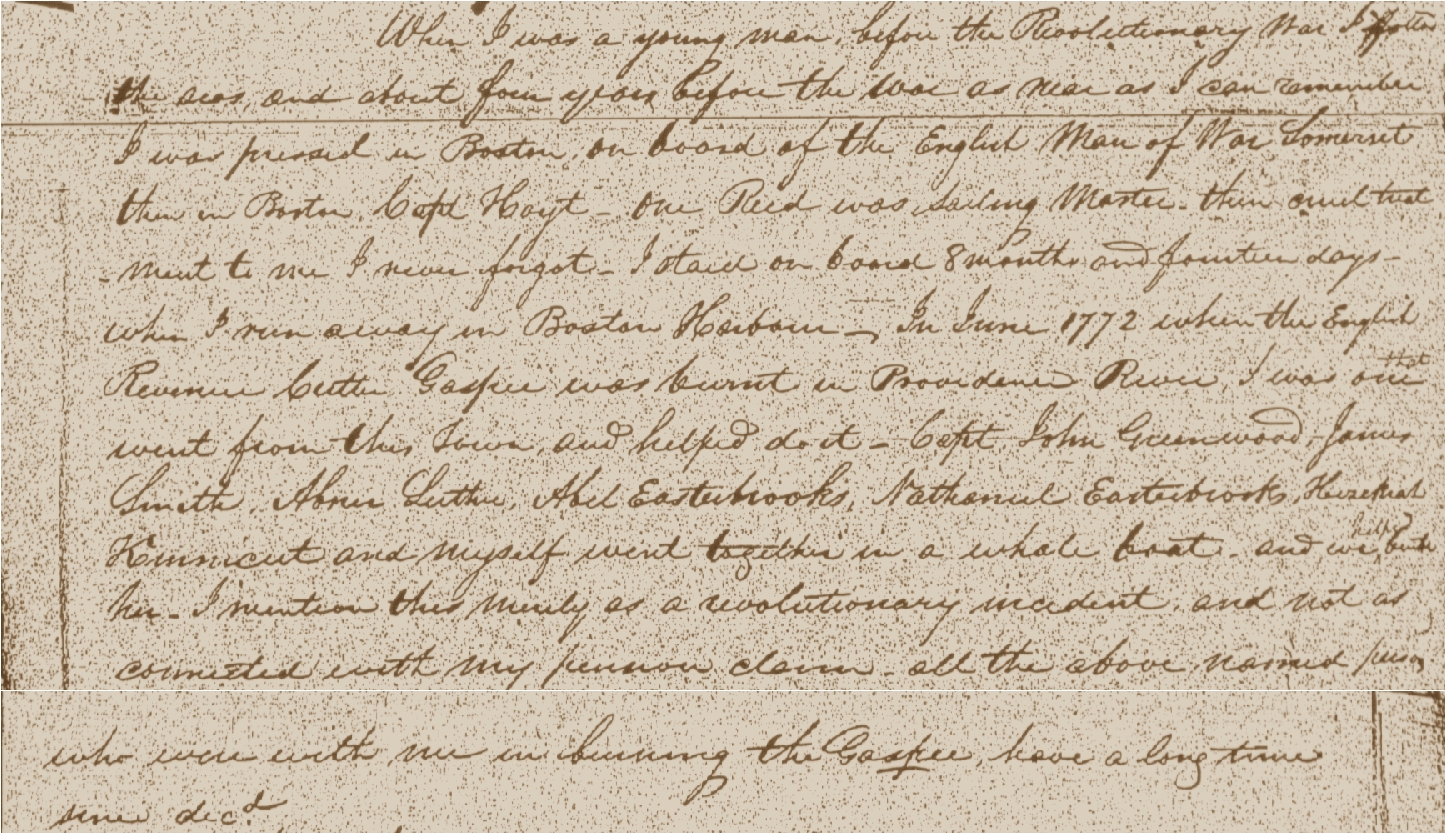 When I was a young man, before the Revolutionary War I follow
the seas, and about four years before the war as near as I can remember
I was pressed in Boston, on board of the English Man of War Somerset
then in Boston, Capt Hayt - one Reed was sailing Master - their cruel treat
-ment to me I never forgot - I staid on board 8 months and fourteen days -
when I run away in Boston Harbour - In June 1772 when the English
Revenue Cutter Gaspee was burnt in Providence River, I was one that
went from this Town, and helped do it - Capt John Greenwood, James
Smith, Abner Luthur, Abel Easterbrooks, Nathaniel Easterbrooks, Hezekiah
Kinnicut and myself went together in a whale boat - and we helpd burn
her - I mention this merely as a revolutionary incident, and not as
connected with my pension claim - all the above named person
who were with me in burning the Gaspee, have a long time
since decd